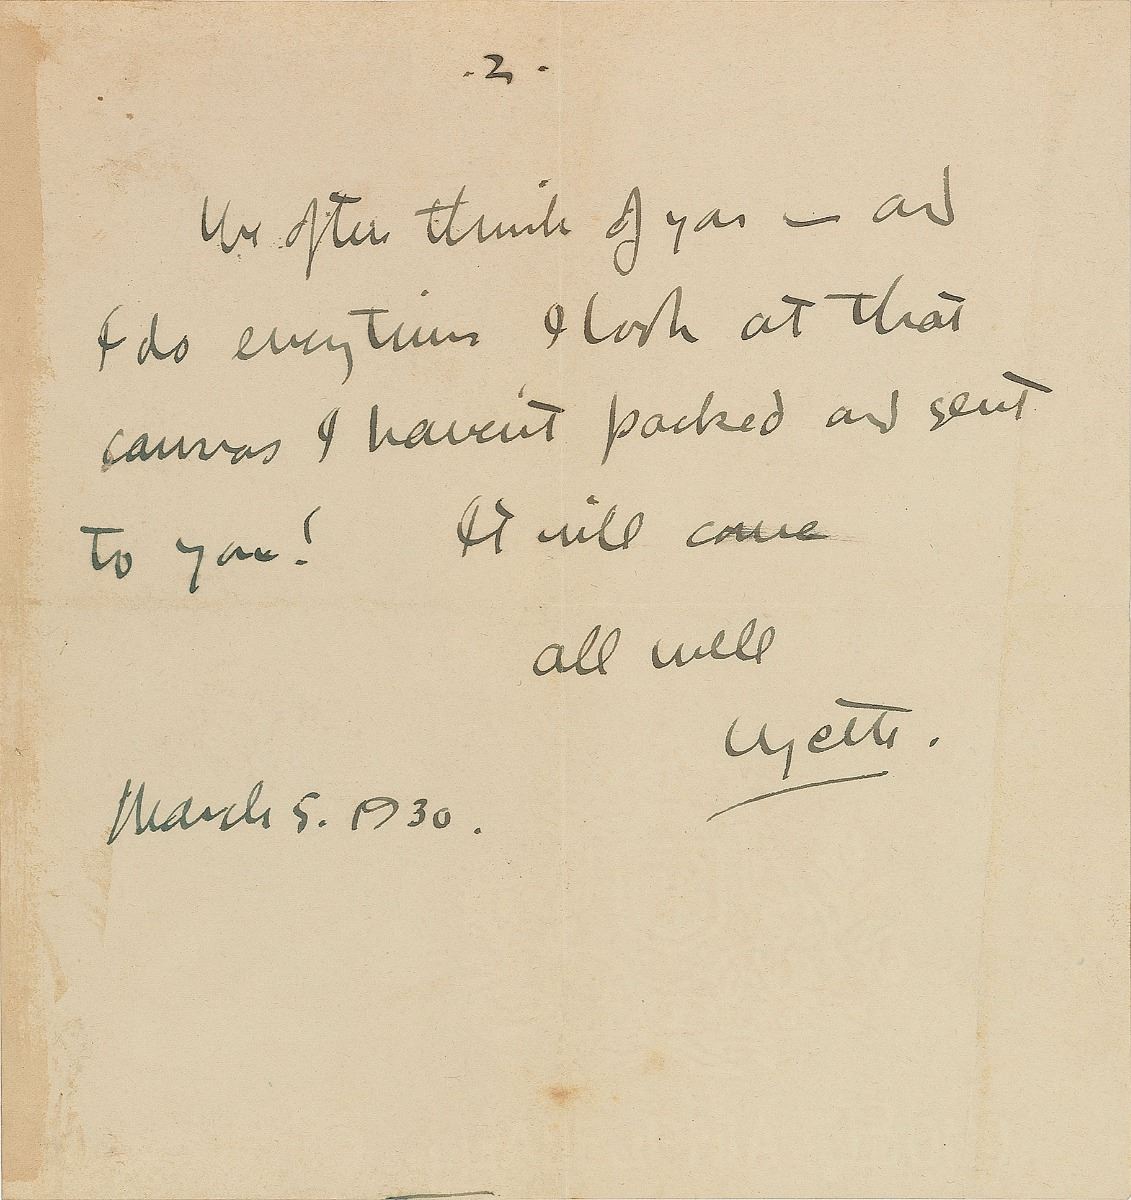 . 2 .
We often think of you — and
I do everytime I look at that
canvas I haven't packed and sent
to you! It will come
all well
Wyeth.
March 5. 1930.